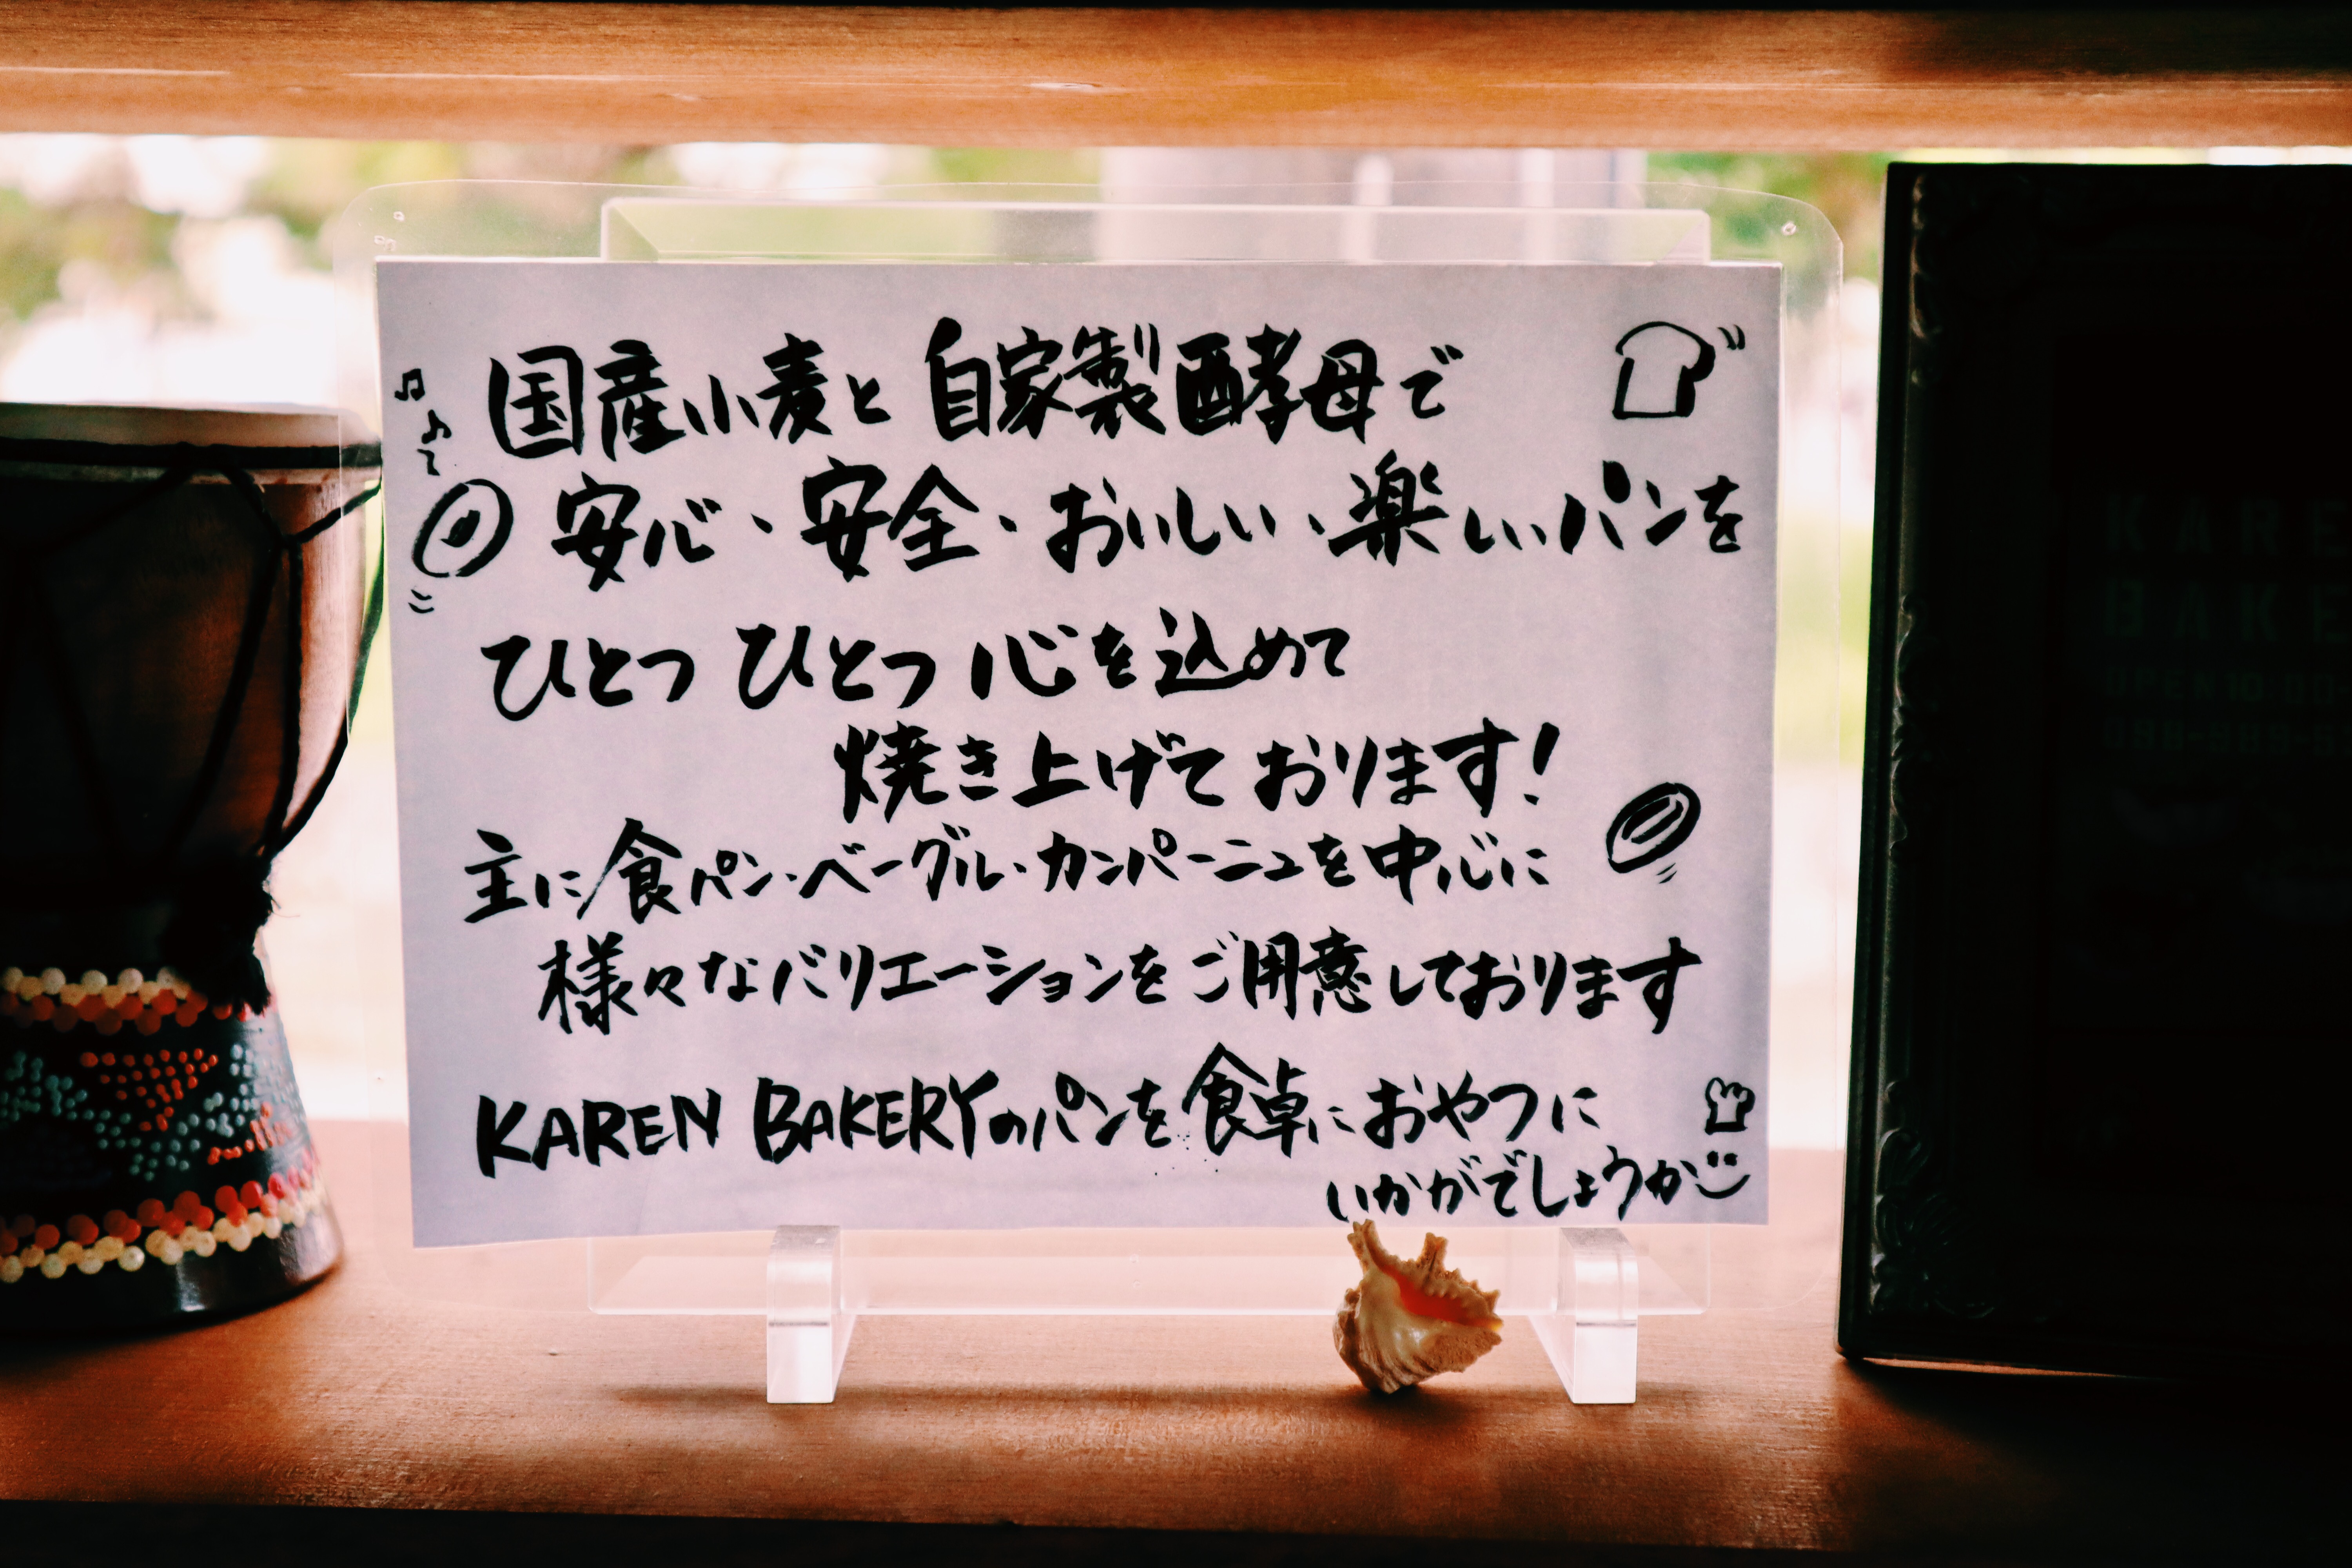 国産小麦と自家製酵母で
安心、安全、おいしい、楽しいパンを
ひとつ ひとつ 心を込めて
焼き上げております!
主に食パン・ベーグル・カンパーニュを中心に
様々なバリエーションをご用意しております
KAREN BAKERYのパンを食卓におやつに
いかがでしょうか
KARE
BAKE